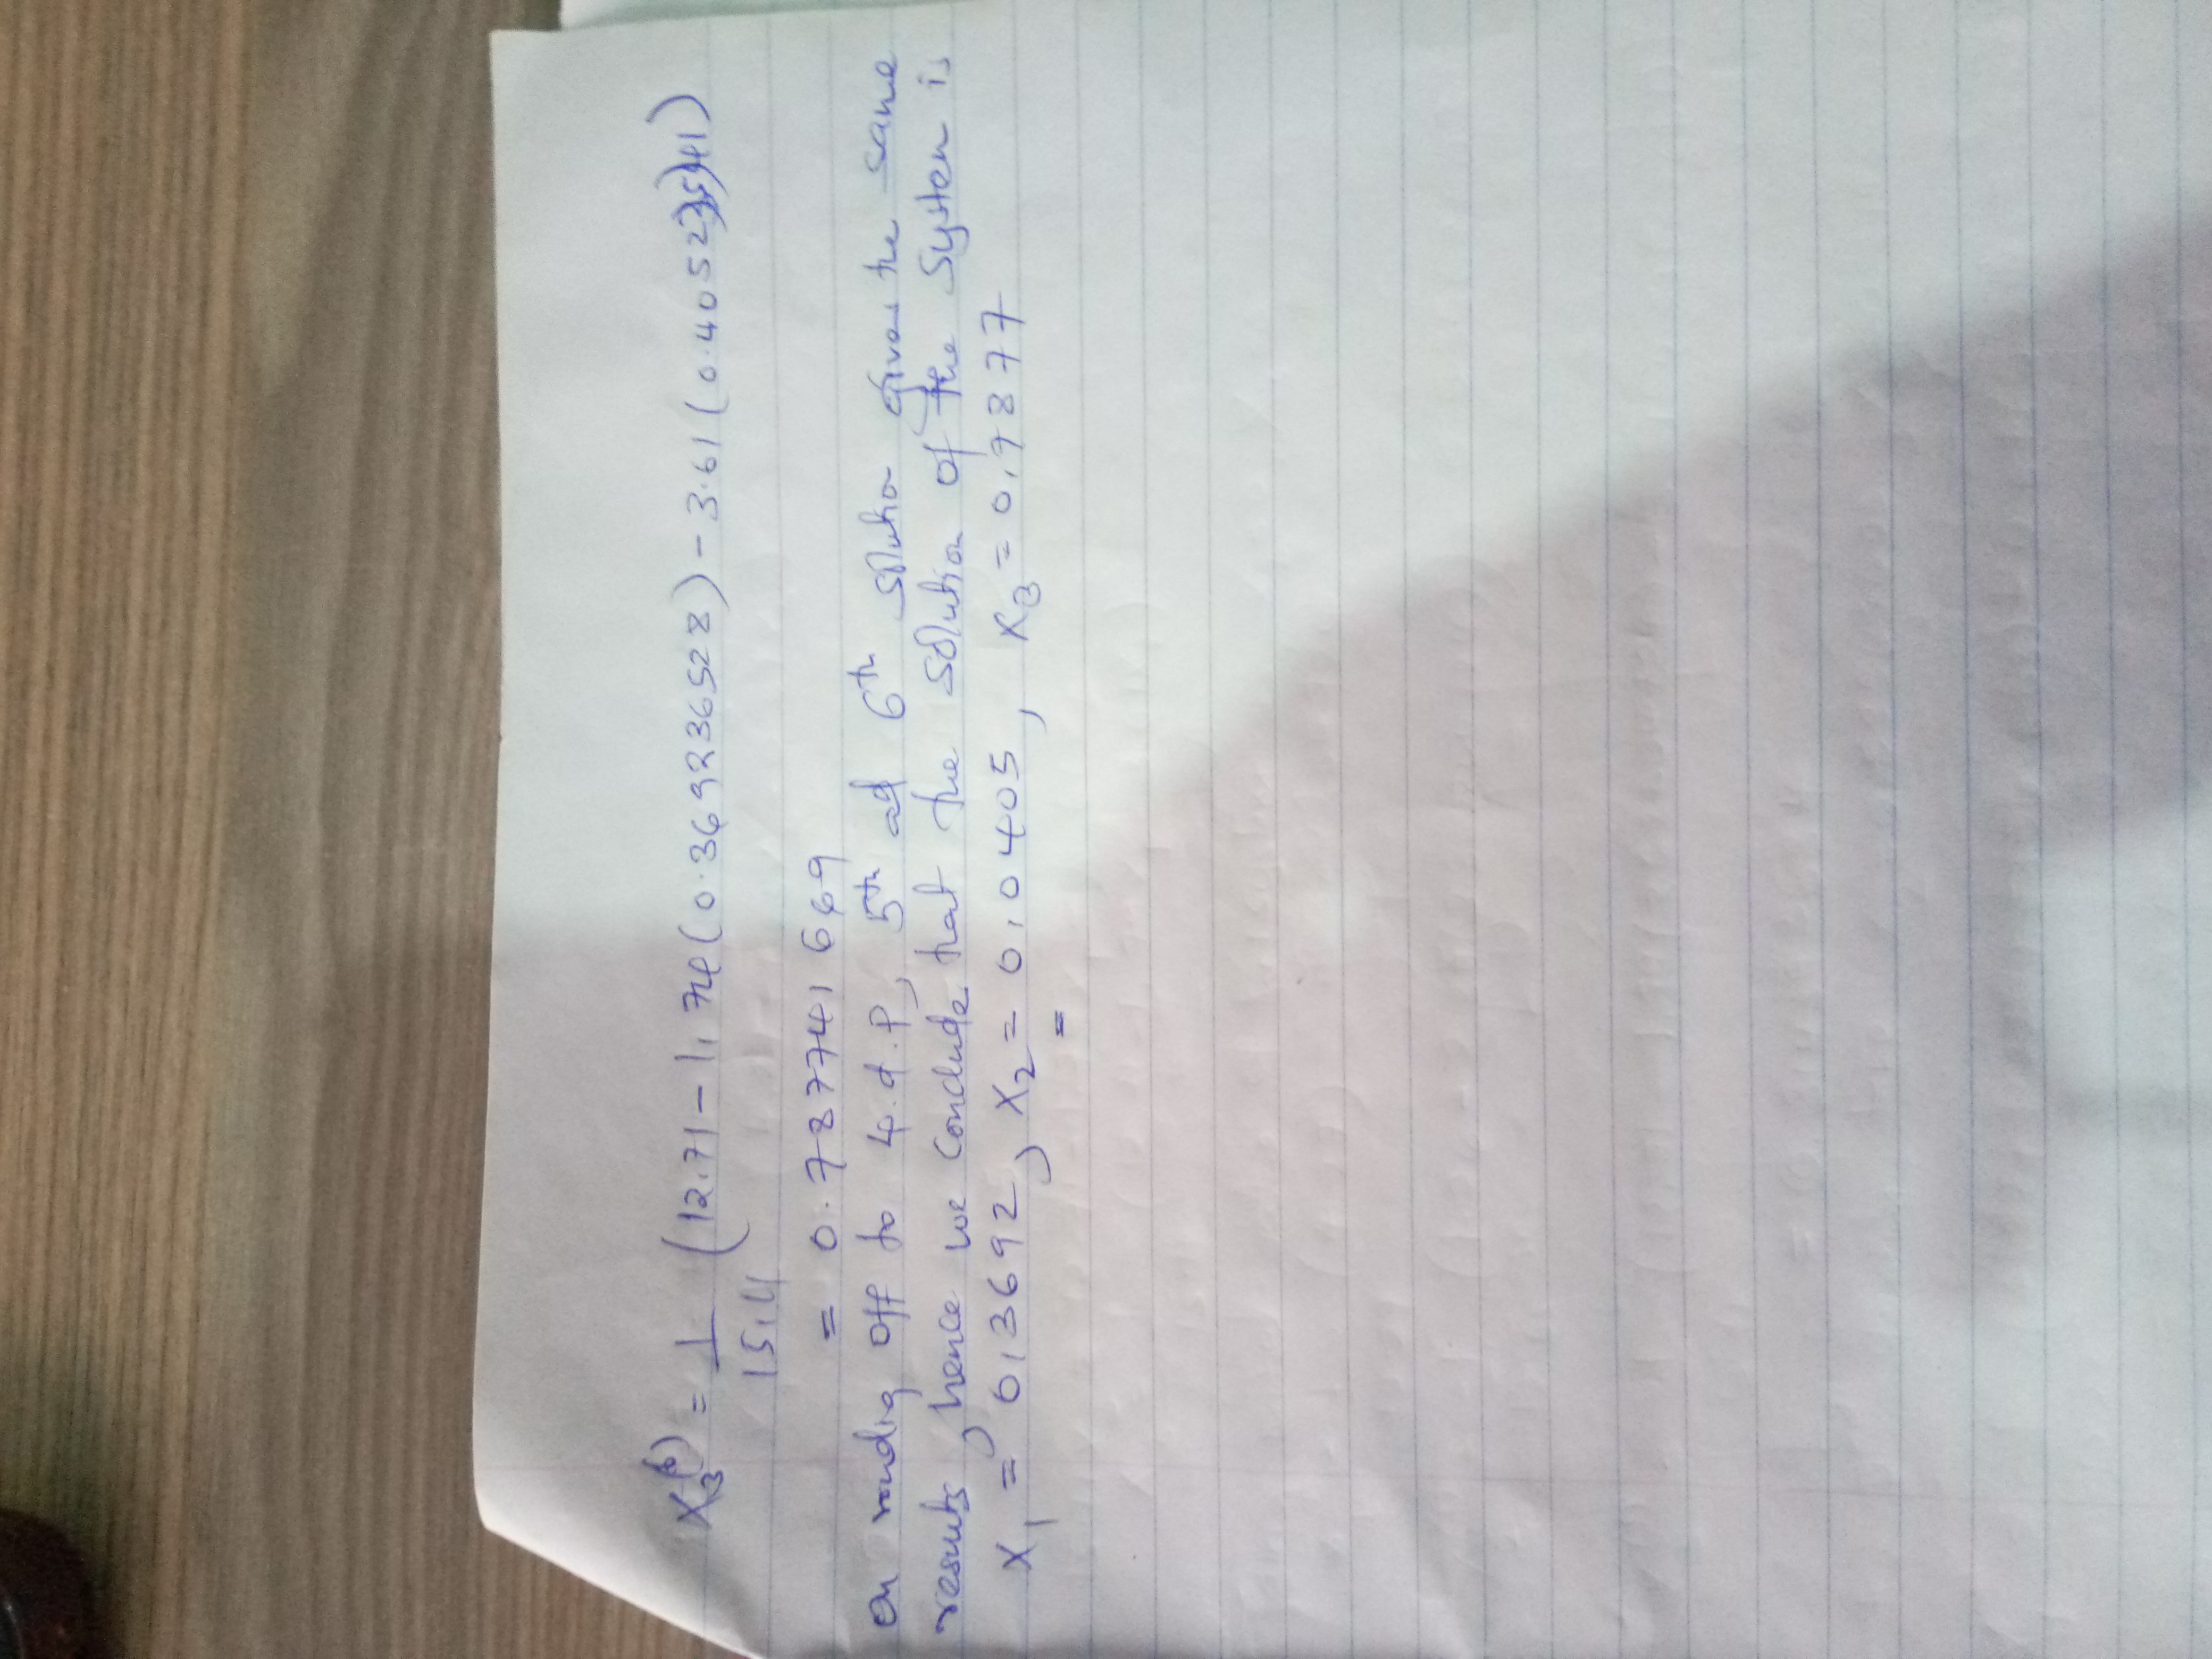 X₃⁽⁶⁾ = 1/15.4 (12.71 - 1.74(0.369236528) - 3.61(0.4052
= 0.787741669
on roundig off to 4.d.P, 5th ad 6th solution gives the same
results, hence we conclude that the solution of the system is
X₁ = 0.3692, X₂ = 0.0405, X₃ = 0.9877
=